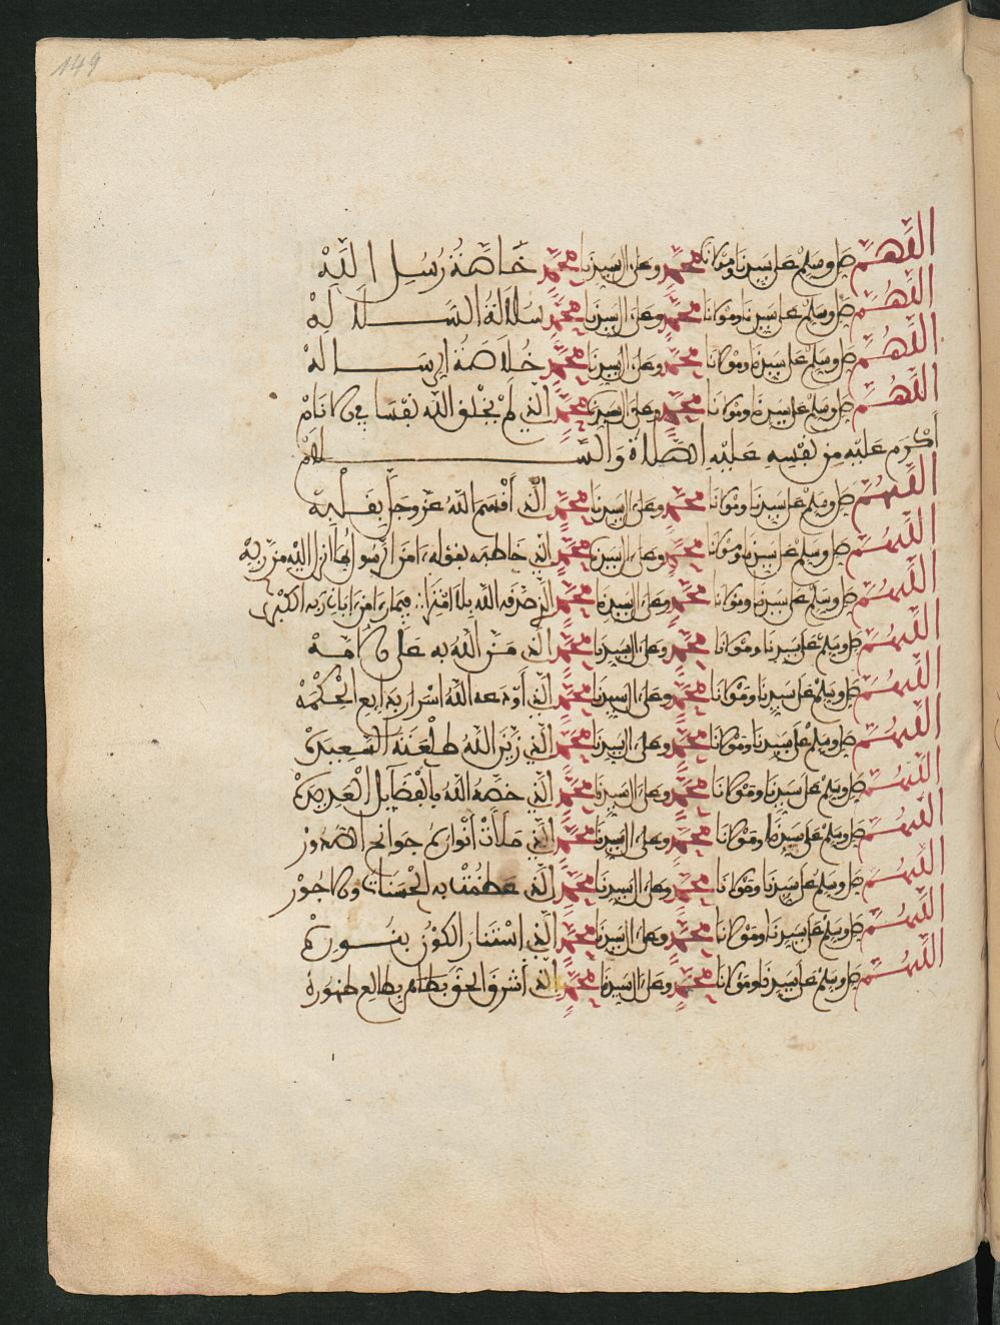 149
اللهم صل وسلم على سيدنا ومولانا محمد وعلى ءال سيدنا محمد خاصة رسل الله
اللهم صل وسلم على سيدنا ومولانا محمد وعلى ءال سيدنا محمد سلالة السلالة
اللهم صل وسلم على سيدنا ومولانا محمد وعلى ءال سيدنا محمد خلاصة الرسالة
اللهم صل وسلم على سيدنا ومولانا محمد وعلى ءال سيدنا محمد الذي لم يخلق الله نفسا في الانام
اكرم عليه من نفسه عليه الصلاة والسلام
اللهم صل وسلم على سيدنا ومولانا محمد وعلى ءال سيدنا محمد الذي أقسم الله عز وجل
اللهم صل وسلم على سيدنا ومولانا محمد وعلى ءال سيدنا محمد الذي خاطبه بقوله ءامن الرسول بما انزل اليه من ربه
اللهم صل وسلم على سيدنا ومولانا محمد وعلى ءال سيدنا محمد الذي الله من ءايات ربه الكبرى
اللهم صل وسلم على سيدنا ومولانا محمد وعلى ءال سيدنا محمد الذي من الله به على الامة
اللهم صل وسلم على سيدنا ومولانا محمد وعلى ءال سيدنا محمد الذي أودعه الله اسرار بدايع الحكمة
اللهم صل وسلم على سيدنا ومولانا محمد وعلى ءال سيدنا محمد الذي زين الله طلعته السعيدة
اللهم صل وسلم على سيدنا ومولانا محمد وعلى ءال سيدنا محمد الذي خصه الله بالفضايل العديدة
اللهم صل وسلم على سيدنا ومولانا محمد وعلى ءال سيدنا محمد الذي ملأت أنواره جوانح الصدور
اللهم صل وسلم على سيدنا ومولانا محمد وعلى ءال سيدنا محمد الذي عظمت به الحسنات والاجور
اللهم صل وسلم على سيدنا ومولانا محمد وعلى ءال سيدنا محمد الذي استنار الكون بنوره
اللهم صل وسلم على سيدنا ومولانا محمد وعلى ءال سيدنا محمد الذي أشرق الحق بطالع ظهوره